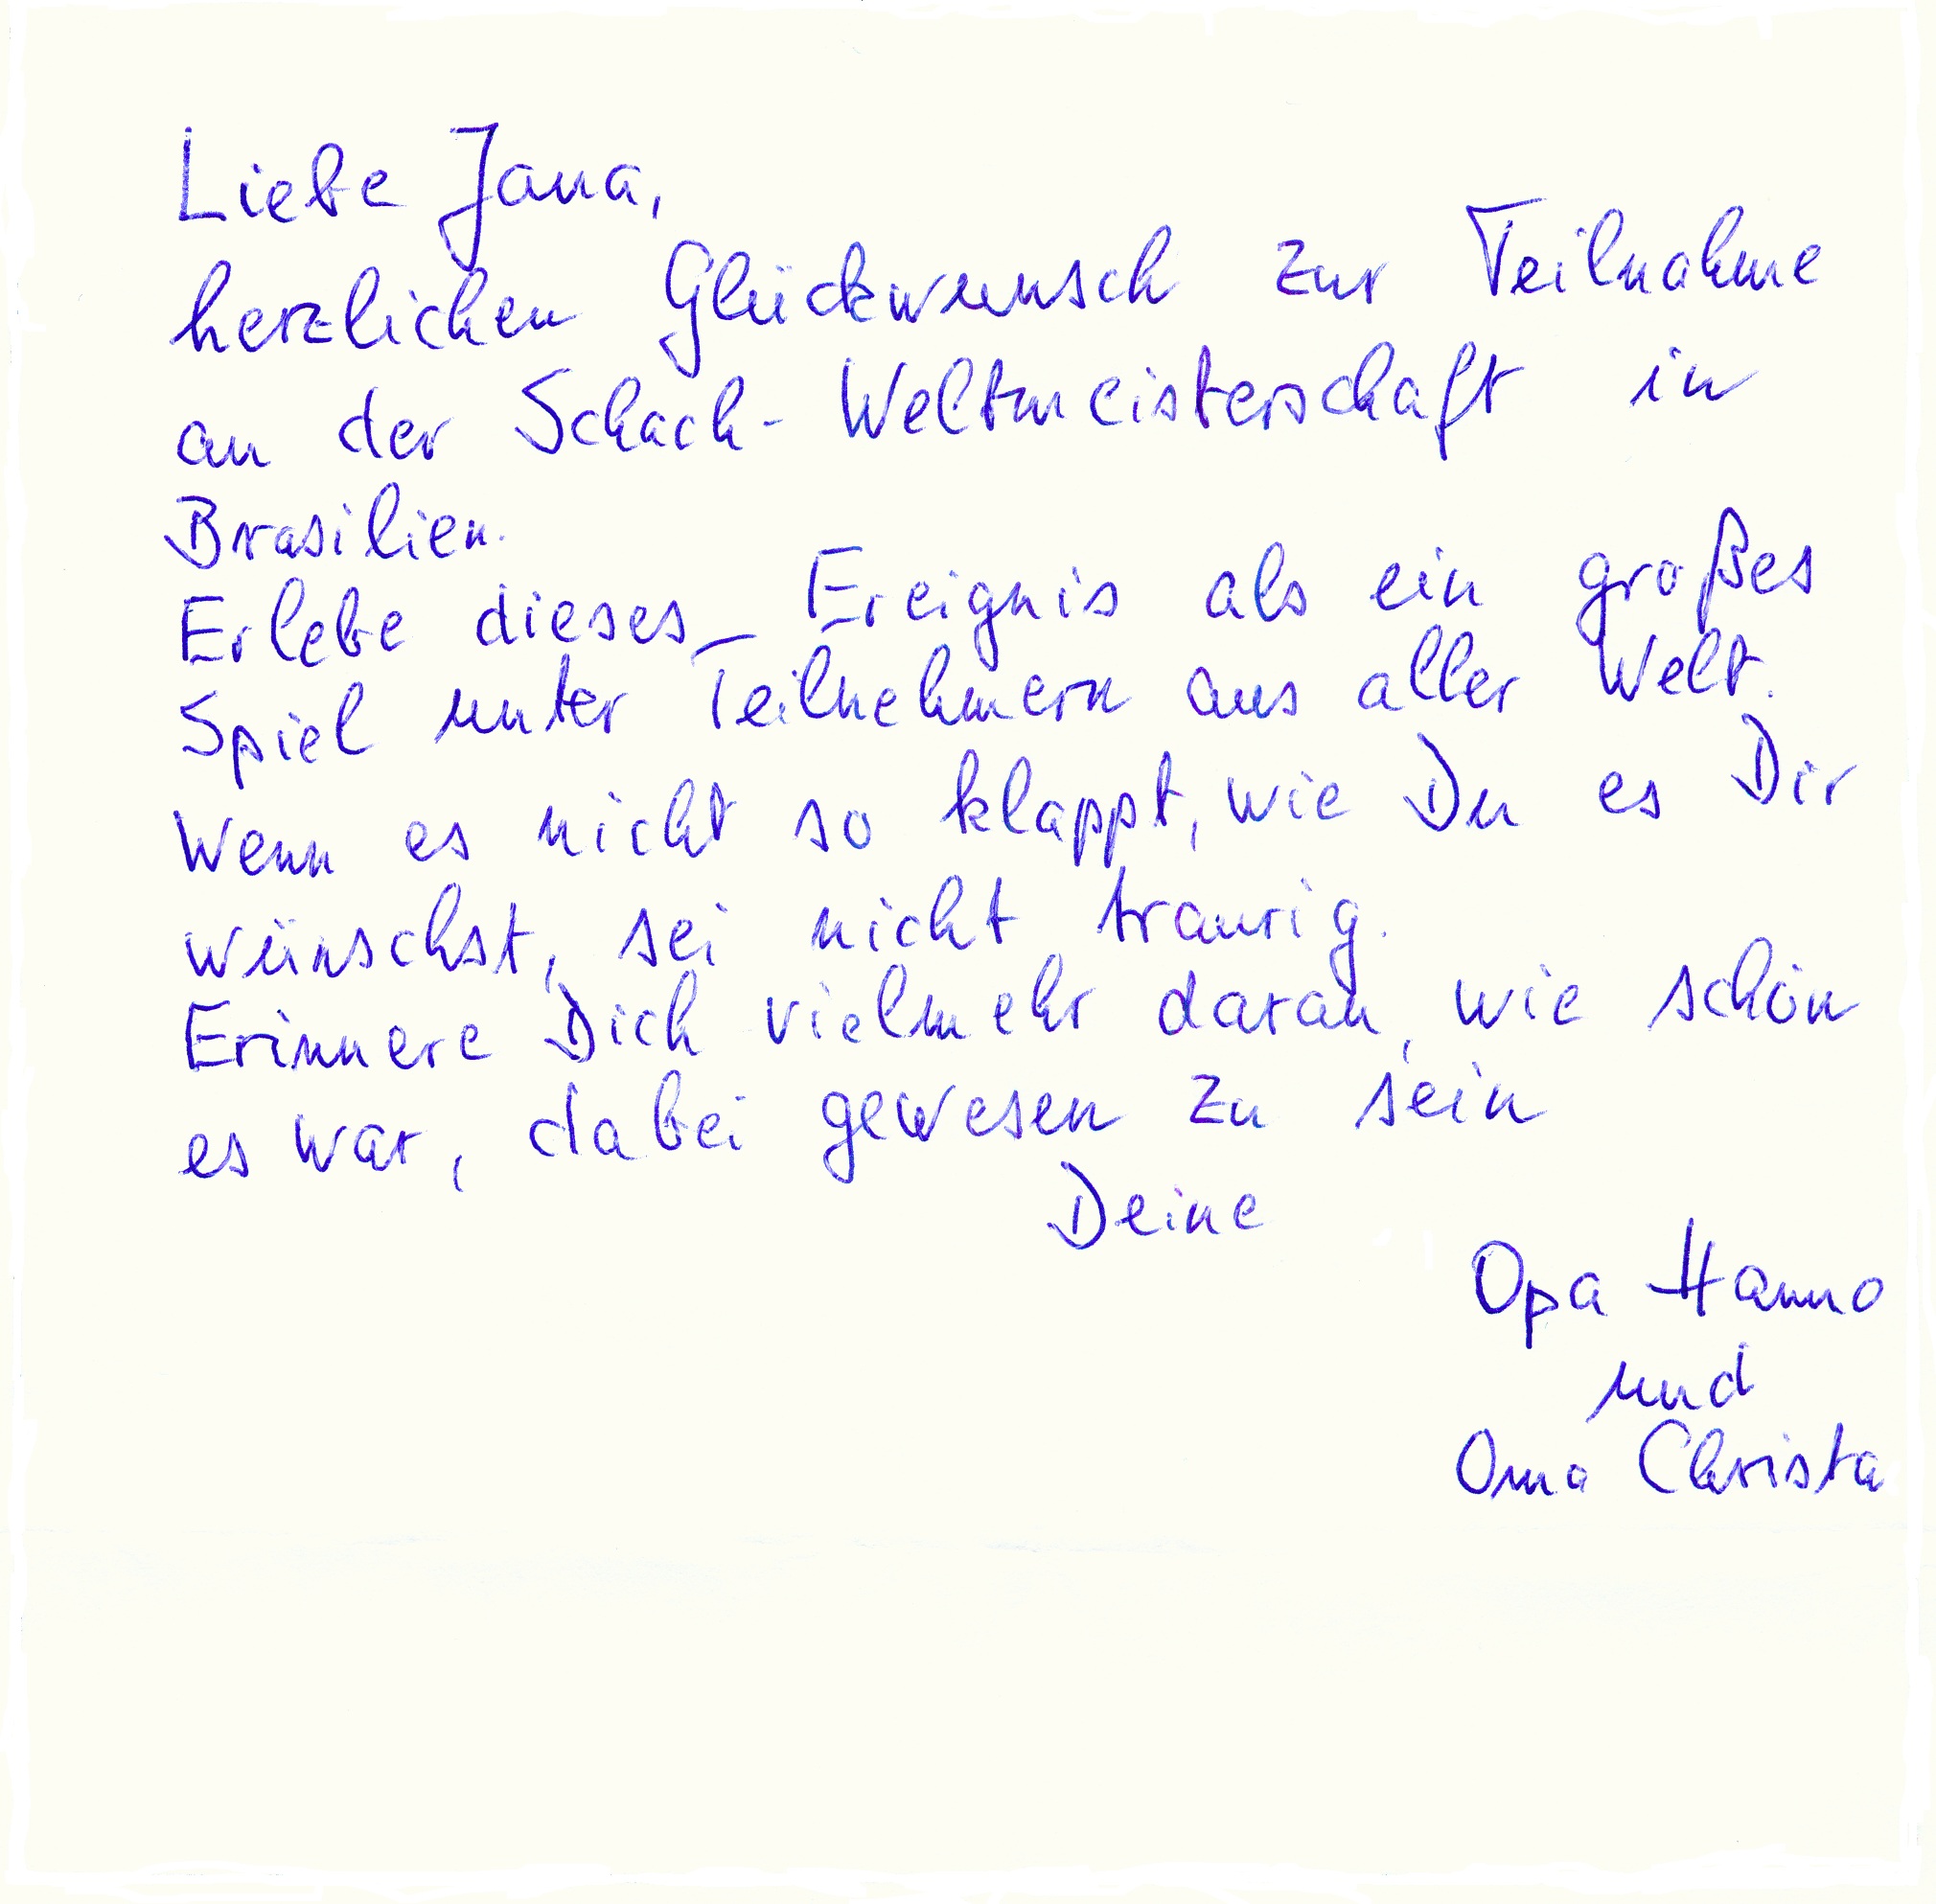 Liebe Jana,
herzlichen Glückwunsch zur Teilnahme
an der Schach-Weltmeisterschaft in
Brasilien.
Erlebe dieses Ereignis als ein großes
Spiel unter Teilnehmern aus aller Welt.
Wenn es nicht so klappt, wie Du es Dir
wünschst, sei nicht traurig.
Erinnere Dich vielmehr daran, wie schön
es war, dabei gewesen zu sein
Deine
Opa Hanno
und
Oma Christa